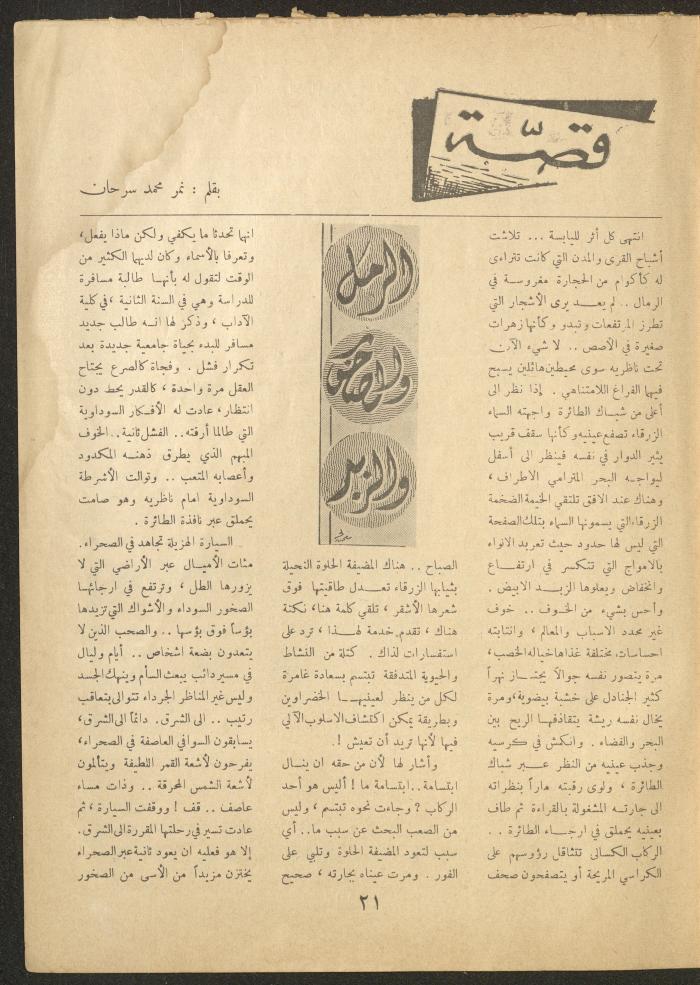 قصّة
بقلم : نمر محمد سرحان
الرمل
والحاضر
والزبد
انتهى كل أثر لليابسة ... تلاشت
أشباح القرى والمدن التي كانت تتراءى
له كأكوام من الحجارة مغروسة في
الرمال .. لم يعد يرى الأشجار التي
تطرز المرتفعات وتبدو وكأنها زهرات
صغيرة في الأصص .. لا شيء الآن
تحت ناظريه سوى محيطين هائلين يسبح
فيهما الفراغ اللامتناهي . إذا نظر الى
أعلى من شباك الطائرة واجهته السماء
الزرقاء تصفع عينيه وكأنها سقف قريب
يثير الدوار في نفسه فينظر الى أسفل
ليواجه البحر المترامي الاطراف ،
وهناك عند الافق تلتقي الخيمة الضخمة
الزرقاء التي يسمونها السماء بتلك الصفحة
التي ليس لها حدود حيث تعربد الانواء
بالامواج التي تتكسر في ارتفاع
وانخفاض ويعلوها الزبد الابيض .
وأحس بشيء من الخوف .. خوف
غير محدد الاسباب والمعالم ، وانتابته
احساسات مختلفة غذاها خياله الخصب ،
مرة يتصور نفسه جوالاً يجتاز نهراً
كثير الجنادل على خشبة بيضوية ، ومرة
يخال نفسه ريشة يتقاذفها الريح بين
البحر والفضاء . وانكمش في كرسيه
وجذب عينيه من النظر عبر شباك
الطائرة ، ولوى رقبته ماراً بنظراته
الى جارته المشغولة بالقراءة ثم طاف
بعينيه يحملق في ارجاء الطائرة ..
الركاب الكسالى تتثاقل رؤوسهم على
الكراسي المريحة أو يتصفحون صحف
الصباح .. هناك المضيفة الحلوة النحيلة
بثيابها الزرقاء تعدل طاقيتها فوق
شعرها الأشقر ، تلقي كلمة هنا ، نكتة
هناك ، تقدم خدمة لهذا ، ترد على
استفسارات لذاك . كتلة من النشاط
والحيوية المتدفقة تبتسم بسعادة غامرة
لكل من ينظر لعينيها الخضراوين
وبطريقة يمكن اكتشاف الاسلوب الآلي
فيها لأنها تريد أن تعيش !.
وأشار لها لأن من حقه ان ينال
ابتسامة.. ابتسامة ما ! أليس هو أحد
الركاب ؟ وجاءت نحوه تبتسم ، وليس
من الصعب البحث عن سبب ما.. أي
سبب لتعود المضيفة الحلوة وتلبي على
الفور . ومرت عيناه بجارته ، صحيح
انهما تحدثا ما يكفي ولكن ماذا يفعل ،
وتعرفا بالأسماء وكان لديها الكثير من
الوقت لتقول له بأنها طالبة مسافرة
للدراسة وهي في السنة الثانية ، في كلية
الآداب ، وذكر لها انه طالب جديد
مسافر للبدء بحياة جامعية جديدة بعد
تكرار فشل . وفجأة كالصرع يجتاح
العقل مرة واحدة ، كالقدر يحط دون
انتظار ، عادت له الأفكار السوداوية
التي طالما أرقته.. الفشل ثانية.. الخوف
المبهم الذي يطرق ذهنه المكدود
وأعصابه المتعب .. وتوالت الأشرطة
السوداوية امام ناظريه وهو صامت
يحملق عبر نافذة الطائرة .
.. السيارة الهزيلة تجاهد في الصحراء.
مئات الأميال عبر الأراضي التي لا
يزورها الطل ، وترتفع في ارجائها
الصخور السوداء والأشواك التي تزيدها
بؤساً فوق بؤسها .. والصحب الذين لا
يتعدون بضعة اشخاص .. أيام وليال
في مسير دائب يبعث السأم وينهك الجسد
وليس غير المناظر الجرداء تتوالى بتعاقب
رتيب .. الى الشرق. دائماً الى الشرق،
يسابقون السوافي العاصفة في الصحراء،
يفرحون لأشعة القمر اللطيفة ويتألمون
لأشعة الشمس المحرقة .. وذات مساء
عاصف .. قف ! ووقفت السيارة ، ثم
عادت تسير في رحلتها المقررة الى الشرق.
إلا هو فعليه ان يعود ثانية عبر الصحراء
يختزن مزيداً من الأسى من الصخور
٢١